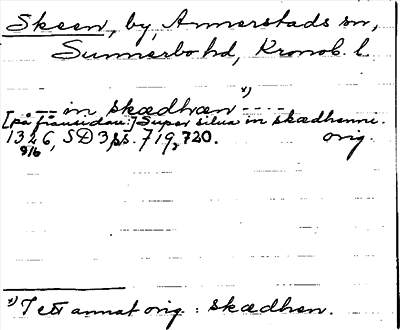 Skeen, by, Annerstads sn,
Sunnerbo hd, Kronob. l.
— — in skædhæn ¹) - - - -
[på frånsidan:] Super silua in skædhenni.
1326, SD 3, s. 719, 720. orig.
9/6
¹) I ett annat orig: skædhen.